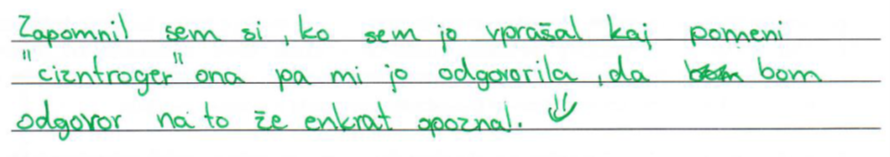 Zapomnil sem si, ko sem jo vprašal kaj pomeni
"cizntroger" ona pa mi jo odgovorila, da bom
odgovor na to že enkrat spoznal.